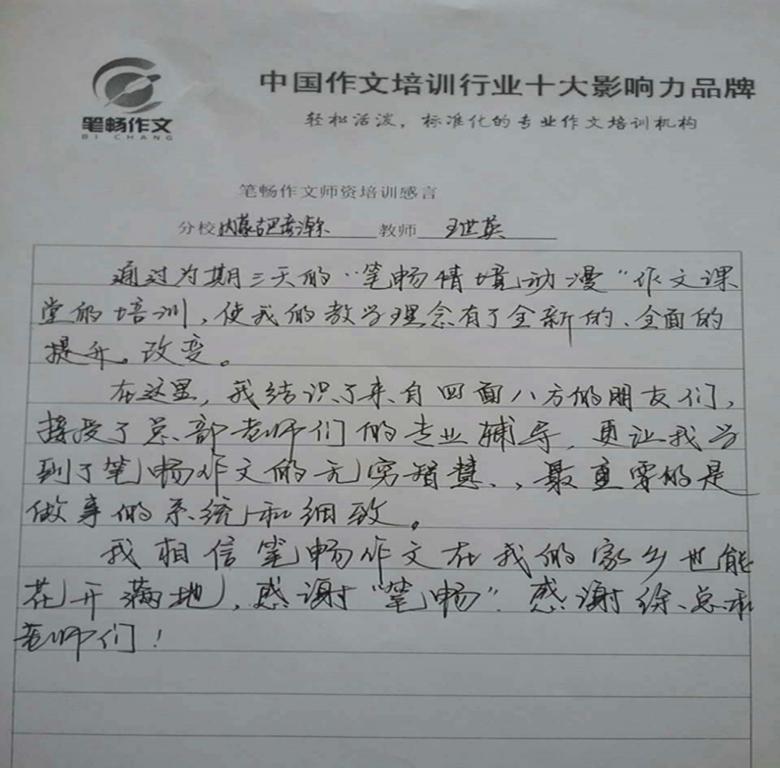 中国作文培训行业十大影响力品牌
笔畅作文
BI CHANG
轻松活泼，标准化的专业作文培训机构
笔畅作文师资培训感言
分校 内蒙古巴彦淖尔 教师 王世英
通过为期三天的“笔畅情境动漫”作文课
堂的培训，使我的教学理念有了全新的、全面的
提升。改变。
在这里，我结识了来自四面八方的朋友们，
接受了总部老师们的专业辅导，更让我学
到了笔畅作文的无穷智慧、，最重要的是
做事的系统和细致。
我相信笔畅作文在我的家乡也能
花开满地，感谢“笔畅”. 感谢徐总和
老师们！